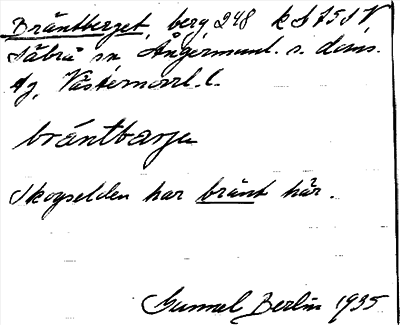 Bräntberget, berg 248 k
Säbrå sn, Ångermanl. s. doms.
Västernorrl. l.
bräntbarje
Skogselden har bränt här.
Gunnel Berlin 1935